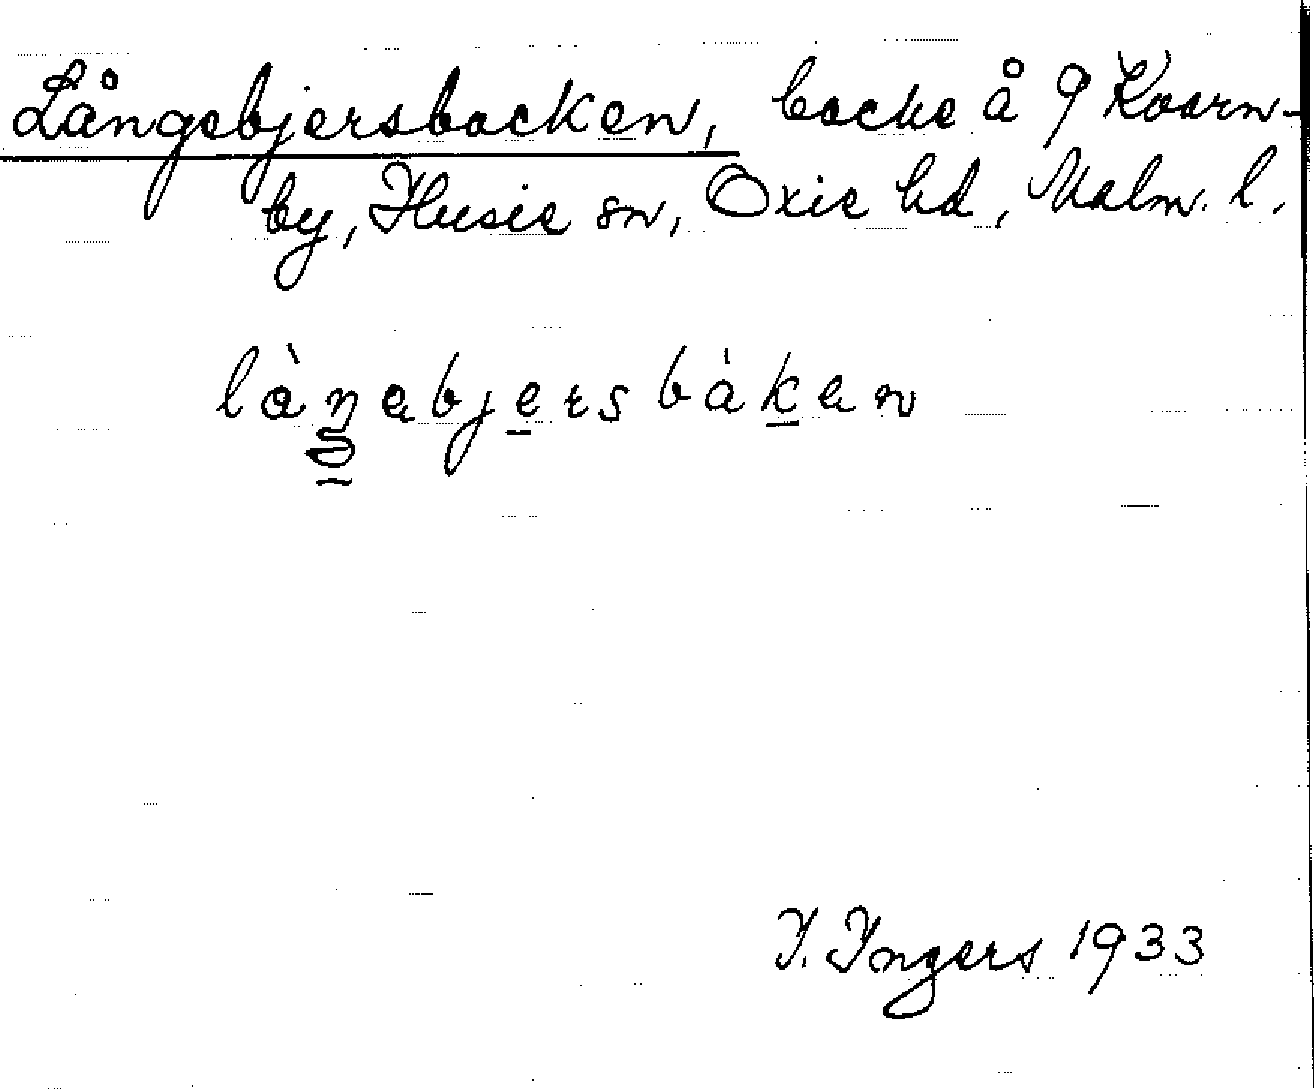 Långebjersbacken, backe å 9 Kvarn-
by, Husie sn, Oxie hd, Malm. l.
låŋebjersbakan
I. Ingers 1933